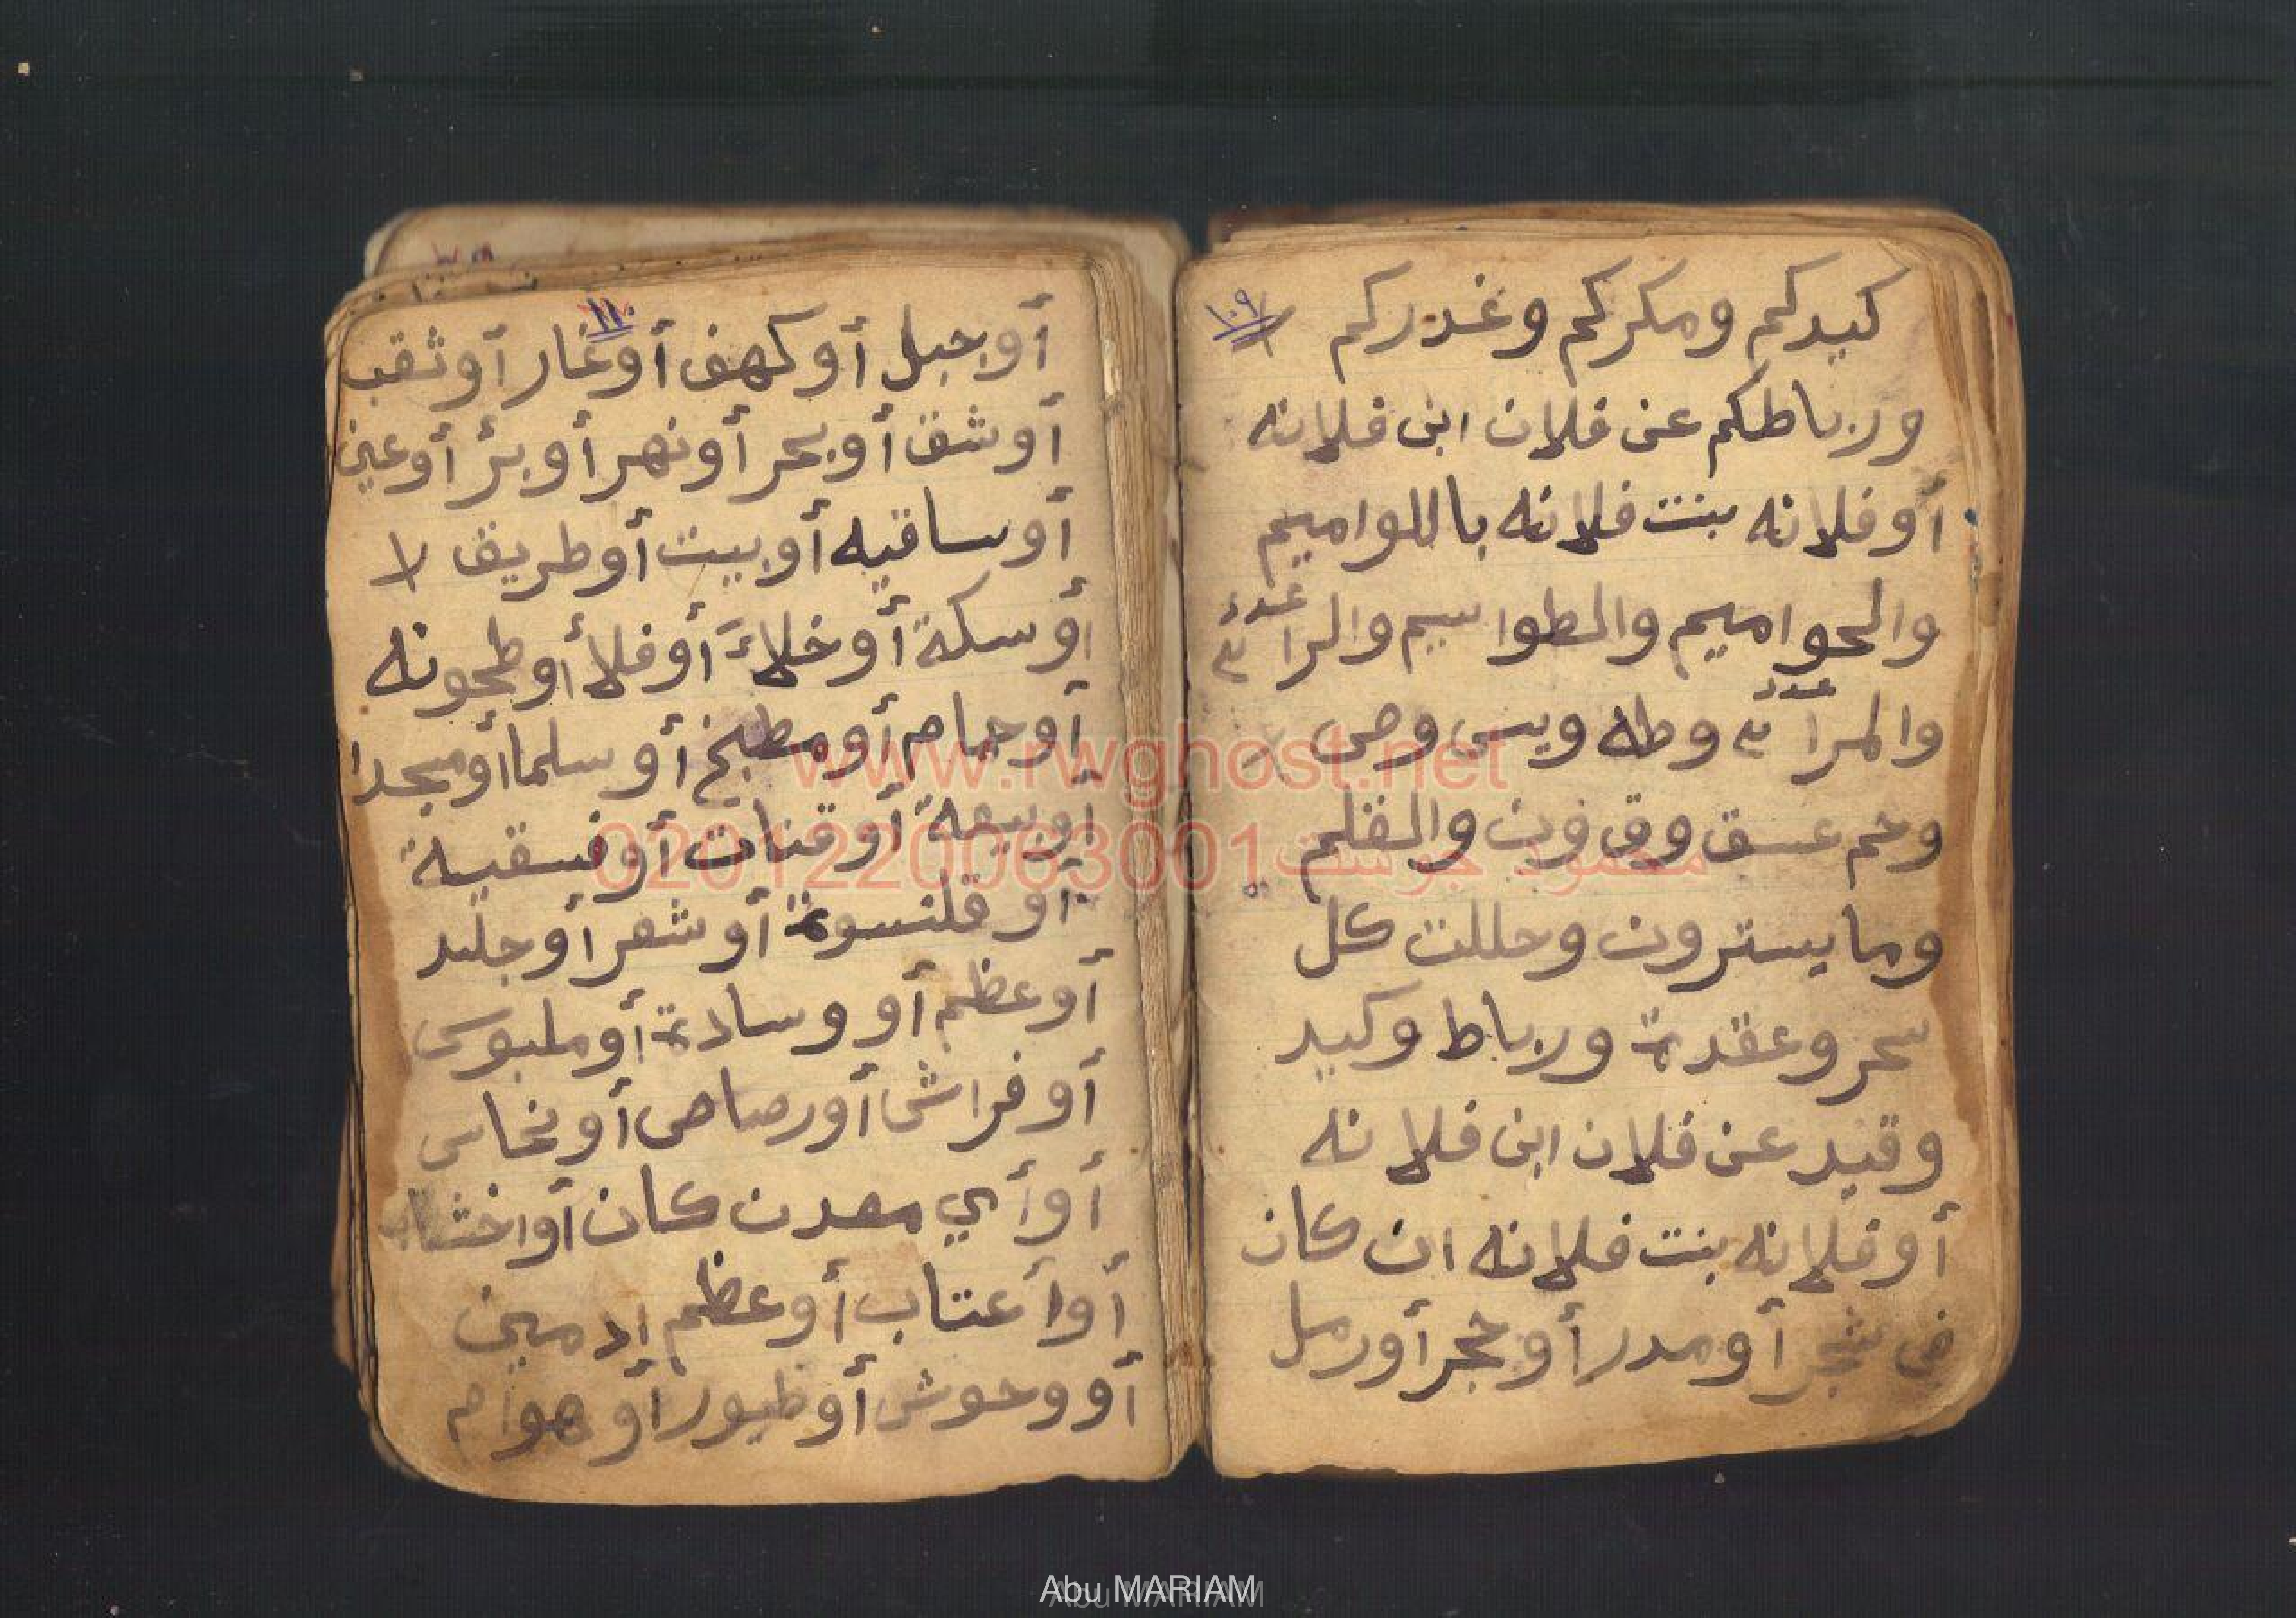 ١٠٩
كيدكم ومكركم وغدركم
ورباطكم عن فلان ابن فلانه
أو فلانه بنت فلانه باللواميم
والحواميم والطواسيم والرا عدد ٣
والمرا عدد ٣ وطه ويس وص
وحم عسق وق ون والقلم
وما يسترون وحللت كل
سحر وعقدة ورباط وكيد
وقيد عن فلان ابن فلانه
أو فلانه بنت فلانه ان كان
فى شجر أو مدر أو حجر أو رمل
١١٠
أو جبل أو كهف أو غار أو ثقب
أو شق أو بحر أو نهر أو بئر أو عين
أو ساقيه أو بيت أو طريق
أو سكة أو خلاءَ أو فلا أو طحونه
أو حمام أو مطبخ أو سلما أو مسجدا
أو بيعة أو قنات أو فسقية
أو قلنسوة أو شعر أو جلد
أو عظم أو وسادة أو ملبوس
أو فراش أو رصاص أو نحاس
أو أي معدن كان أو اخشاب
أو أعتاب أو عظم إدمين
أو وحوش أو طيور أو هوام
www.rwghost.net
محمود جوست 0201220063001
Abu MARIAM